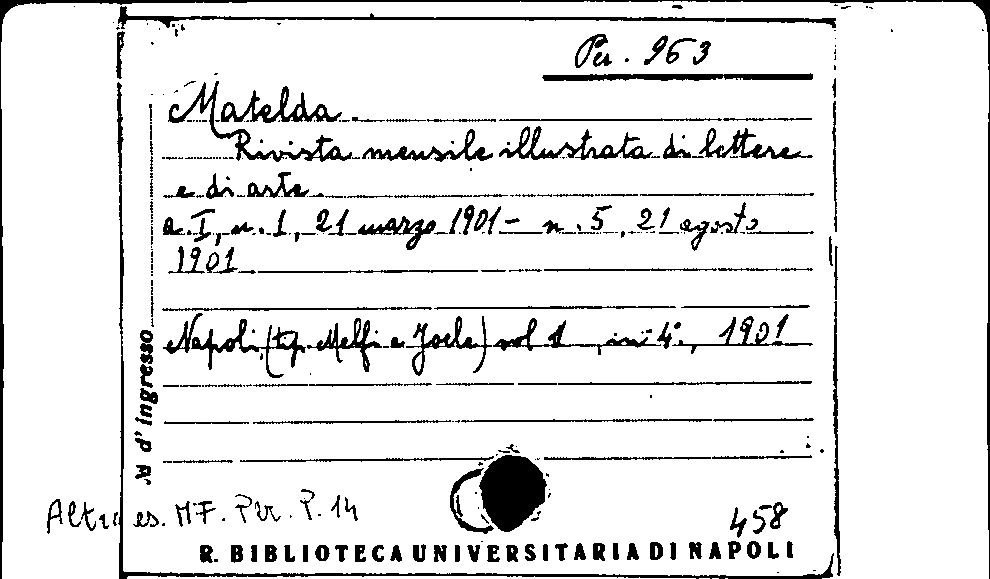 Per. 963
Matelda.
Rivista mensile illustrata di lettere
e di arte.
a. I, n. 1, 21 marzo 1901 - n. 5, 21 agosto
1901
Napoli, (tip. Melfi e Joele) vol 1, in 4°., 1901
N. d'ingresso
Altro es. MF. Per. P. 14
458
R. BIBLIOTECA UNIVERSITARIA DI NAPOLI